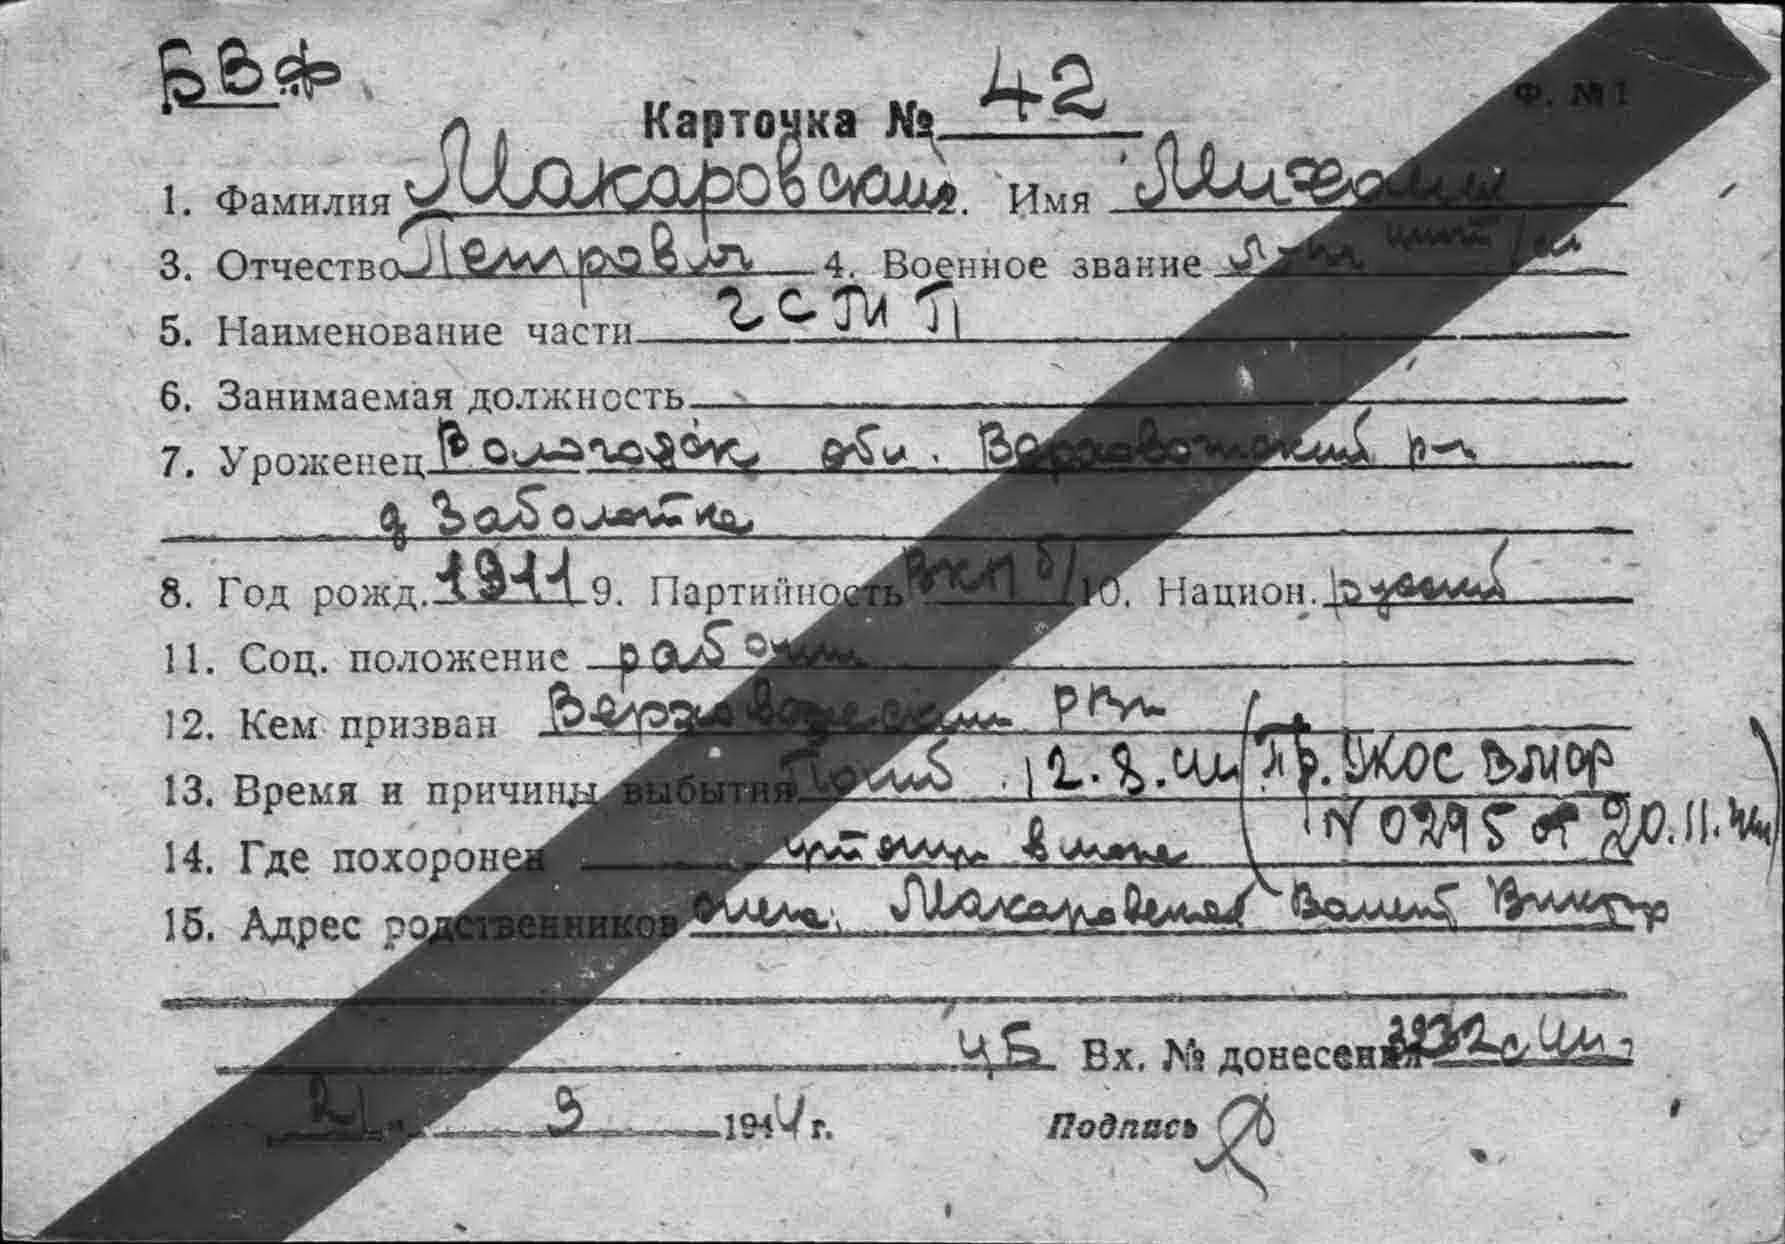 БВФ
Карточка № 42
Ф. №1
1. Фамилия Макаровский 2. Имя Михаил
3. Отчество Петрович 4. Военное звание
5. Наименование части
6. Занимаемая должность
7. Уроженец Вологодск обл. Верховажский р-н
д Заболотье
8. Год рожд. 1911 9. Партийность ВКП б/ 10. Национ. русский
11. Соц. положение рабочий
12. Кем призван Верховажским РВк
13. Время и причины выбытия Погиб 12.8.44 (Пр. УКОС ВМФ
N 0295 от 20.11.44)
14. Где похоронен утонул в море
15. Адрес родственников жена: Макаровская Вален Виктор
ЦБ Вх. № донесения с 44 г
21 " 9 1944 г. Подпись